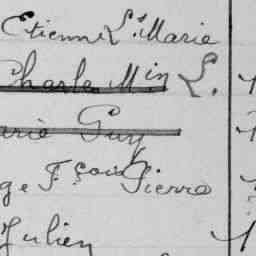 Etienne Ls Marie
Charles Min L.
arie Guy
ge Fçois Pierre
Julien